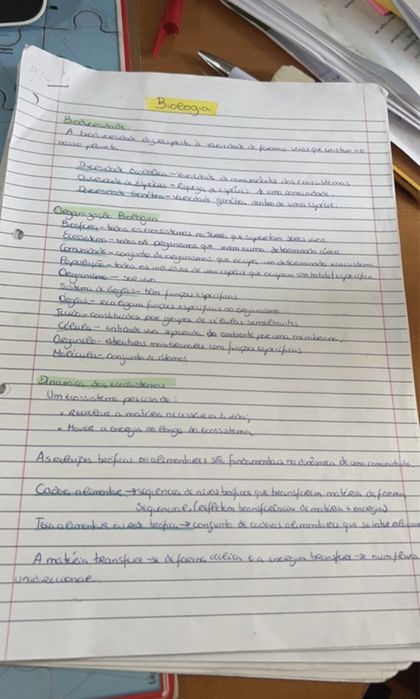 Biologia
Biodiversidade
A biodiversidade diz respeito à variedade de formas vivas que existem no
nosso planeta.
Diversidade Ecológica - Variedade de comunidades dos ecossistemas
Diversidade de Espécies - Riqueza de espécies de uma comunidade
Diversidade Genética - Variedade genética dentro de uma espécie.
Organização Biológica
Biosfera - todos os ecossistemas na Terra que suportam seres vivos
Ecossistema - todos os organismos que vivem numa determinada área
Comunidade - conjunto de organismos que ocupa um determinado ecossistema
População - todos os indivíduos de uma espécie que ocupam um habitat específico
Organismo - ser vivo
Sistema de órgãos - têm funções específicas
Órgãos - realizam funções específicas no organismo
Tecido - constituídos por grupos de células semelhantes
Célula - entidade viva separada do ambiente por uma membrana.
Organelo - estruturas membranares com funções específicas
Molécula - conjunto de átomos
Dinâmica dos ecossistemas
Um ecossistema precisa de:
• Reciclar a matéria necessária à vida;
• Mover a energia ao longo do ecossistema
As relações tróficas ou alimentares são fundamentais na dinâmica de uma comunidade
Cadeia alimentar → sequência de níveis tróficos que transferem matéria de forma
sequencial. (refletem transferências de matéria e energia)
Teia alimentar ou rede trófica → conjunto de cadeias alimentares que se
A matéria transfere-se de forma cíclica e a energia transfere-se num fluxo
unidirecional